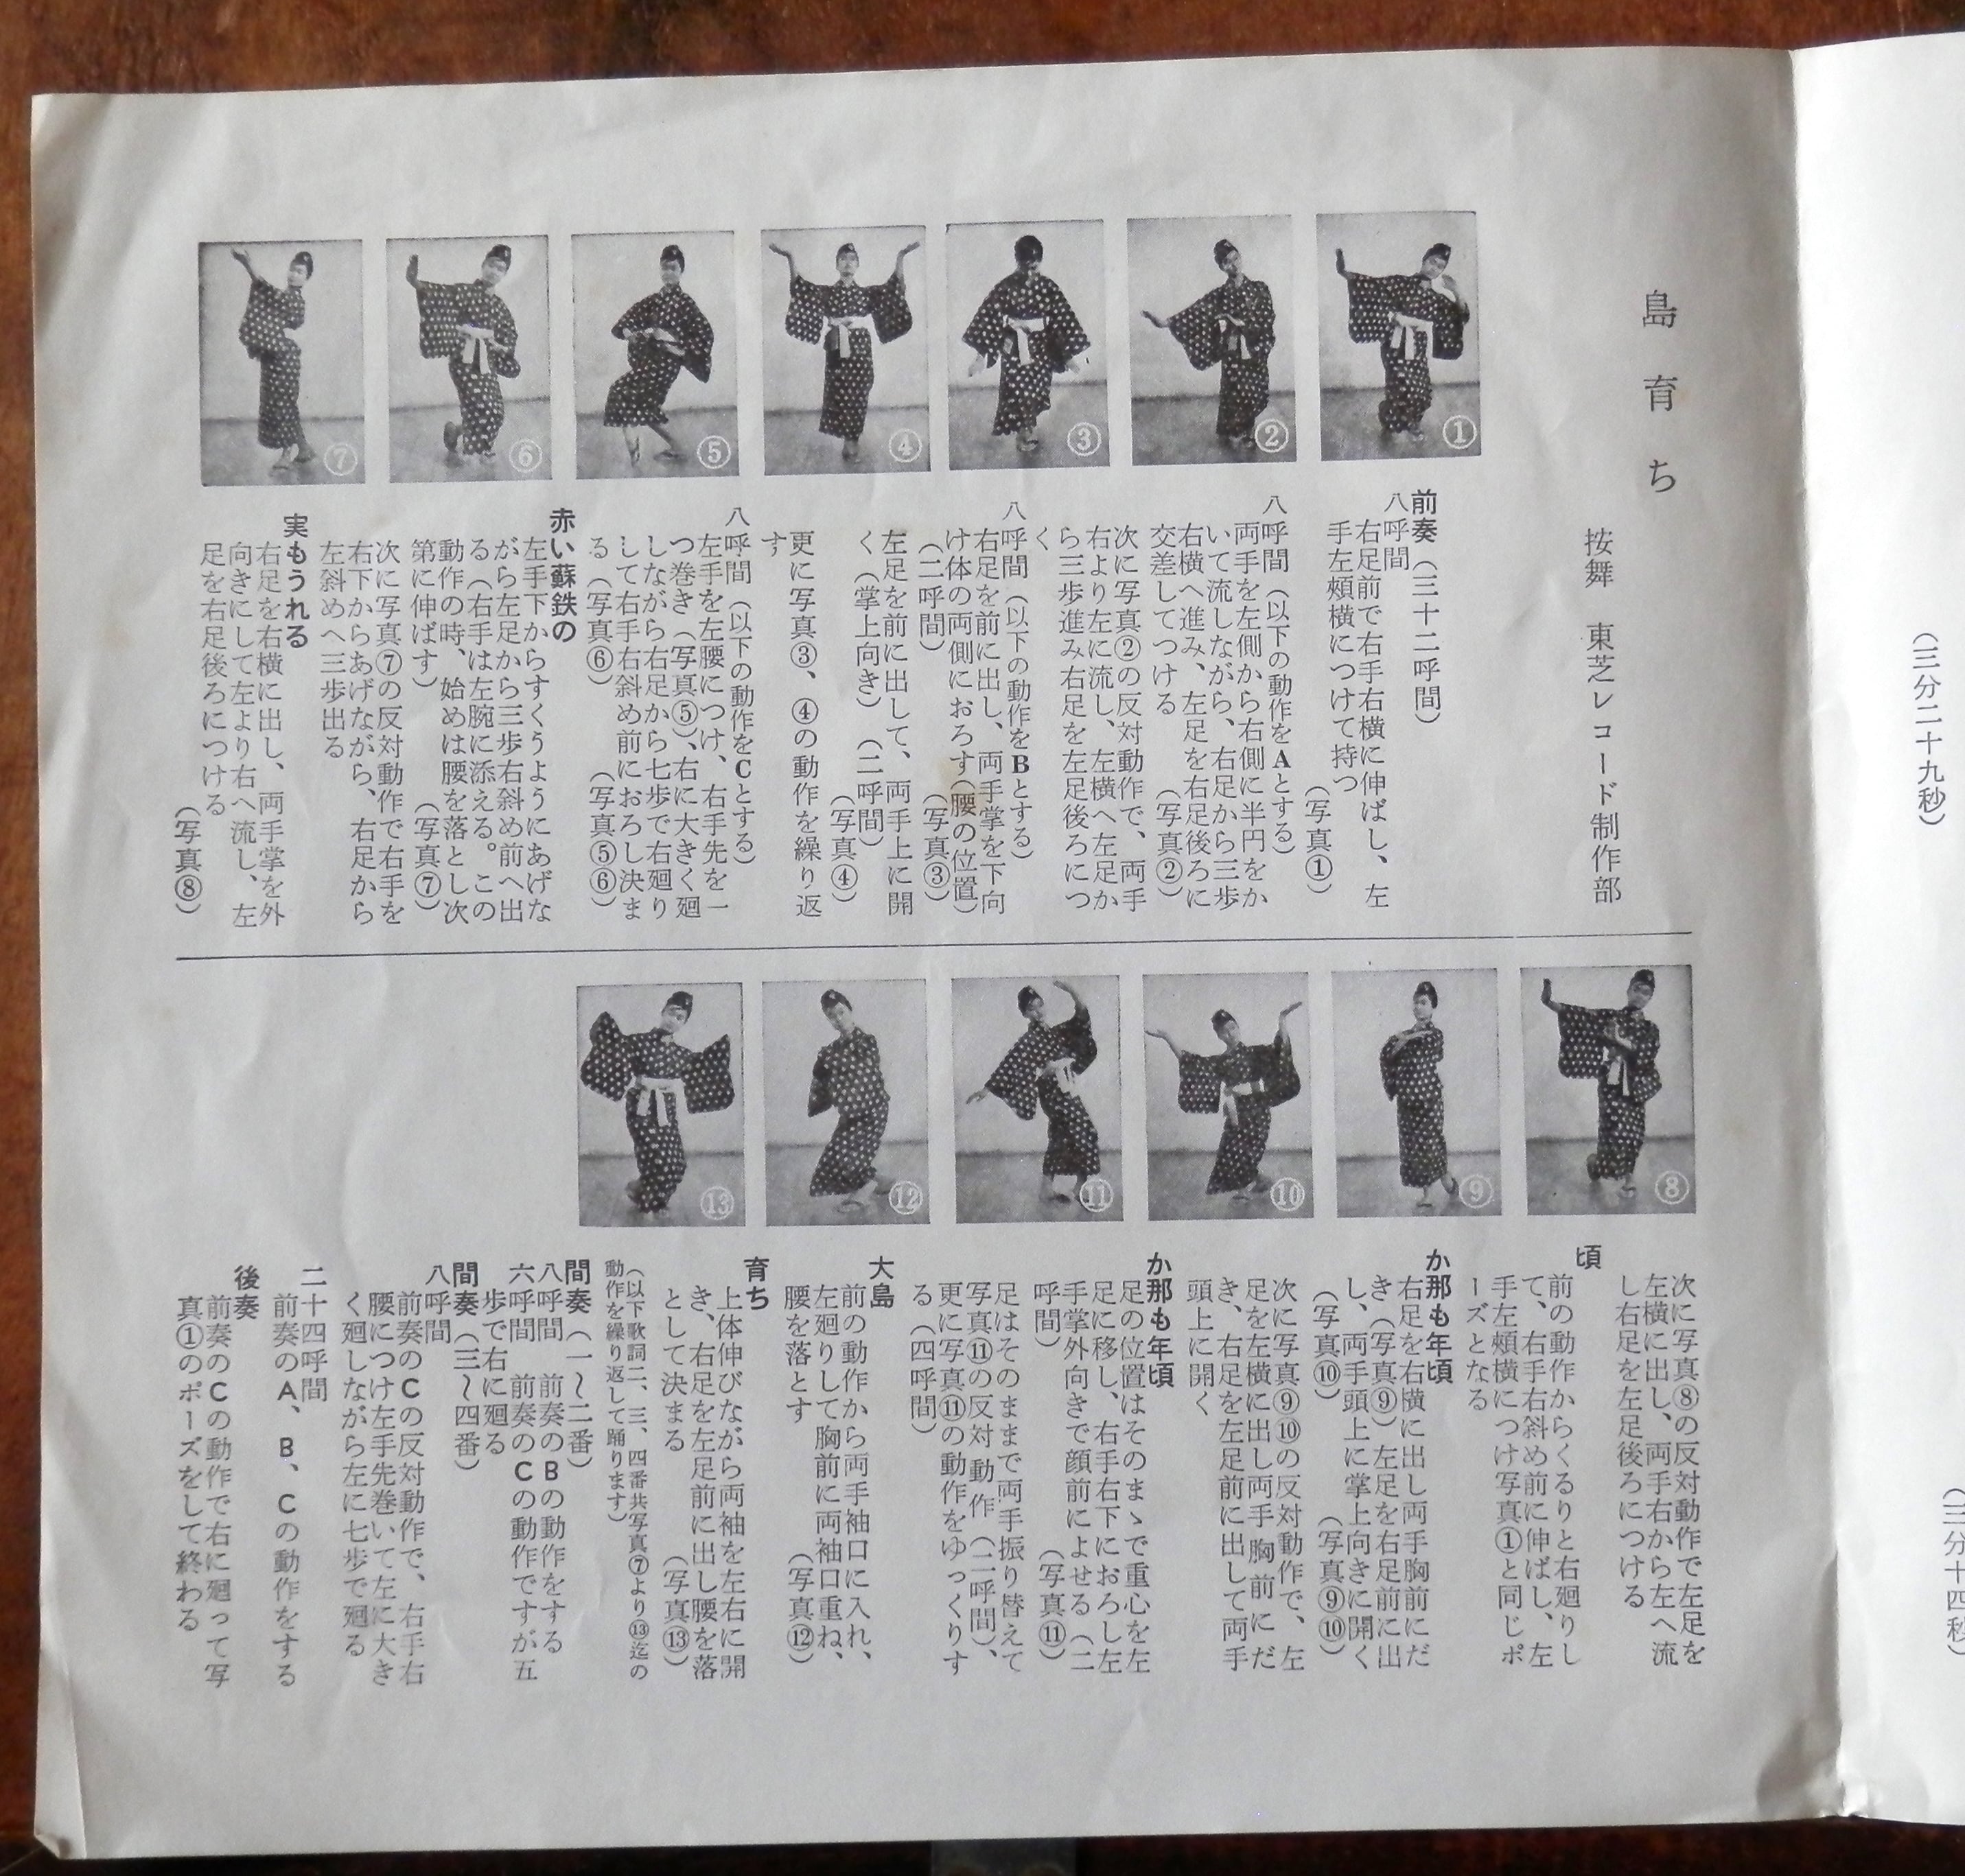 島育ち
按舞　東芝レコード制作部
①
②
③
④
⑤
⑥
⑦
前奏（三十二呼間）
八呼間
右足前で右手右横に伸ばし、左
手左頰横につけて持つ
（写真①）
八呼間（以下の動作をＡとする）
両手を左側から右側に半円をか
いて流しながら、右足から三歩
右横へ進み、左足を右足後ろに
交差してつける　（写真②）
次に写真②の反対動作で、両手
右より左に流し、左横へ左足か
ら三歩進み右足を左足後ろにつ
く
八呼間（以下の動作をＢとする）
右足を前に出し、両手掌を下向
け体の両側におろす（腰の位置）
（二呼間）　（写真③）
左足を前に出して、両手上に開
く（掌上向き）（二呼間）
（写真④）
更に写真③、④の動作を繰り返
す
八呼間（以下の動作をＣとする）
左手を左腰につけ、右手先を一
つ巻き（写真⑤）、右に大きく廻
しながら右足から七歩で右廻り
して右手右斜め前におろし決ま
る（写真⑥）　（写真⑤⑥）
赤い蘇鉄の
左手下からすくうようにあげな
がら左足から三歩右斜め前へ出
る（右手は左腕に添える。この
動作の時、始めは腰を落とし次
第に伸ばす）　（写真⑦）
次に写真⑦の反対動作で右手を
右下からあげながら、右足から
左斜めへ三歩出る
実もうれる
右足を右横に出し、両手掌を外
向きにして左より右へ流し、左
足を右足後ろにつける
（写真⑧）
⑧
⑨
⑩
⑪
⑫
⑬
次に写真⑧の反対動作で左足を
左横に出し、両手右から左へ流
し右足を左足後ろにつける
頃
前の動作からくるりと右廻りし
て、右手右斜め前に伸ばし、左
手左頰横につけ写真①と同じポ
ーズとなる
か那も年頃
右足を右横に出し両手胸前にだ
き、（写真⑨）左足を右足前に出
し、両手頭上に掌上向きに開く
（写真⑩）　（写真⑨⑩）
次に写真⑨⑩の反対動作で、左
足を左横に出し両手胸前にだ
き、右足を左足前に出して両手
頭上に開く
か那も年頃
足の位置はそのまゝで重心を左
足に移し、右手右下におろし左
手掌外向きで顔前によせる（二
呼間）　（写真⑪）
足はそのままで両手振り替えて
写真⑪の反対動作（二呼間）、
更に写真⑪の動作をゆっくりす
る（四呼間）
大島
前の動作から両手袖口に入れ、
左廻りして胸前に両袖口重ね、
腰を落とす　（写真⑫）
育ち
上体伸びながら両袖を左右に開
き、右足を左足前に出し腰を落
として決まる　（写真⑬）
（以下歌詞二、三、四番共写真⑦より⑬迄の
動作を繰り返して踊ります）
間奏（一〜二番）
八呼間　前奏のＢの動作をする
六呼間　前奏のＣの動作ですが五
歩で右に廻る
間奏（三〜四番）
八呼間
前奏のＣの反対動作で、右手右
腰につけ左手先巻いて左に大き
く廻しながら左に七歩で廻る
二十四呼間
前奏のＡ、Ｂ、Ｃの動作をする
後奏
前奏のＣの動作で右に廻って写
真①のポーズをして終わる
（三分二十九秒）
（三分十四秒）